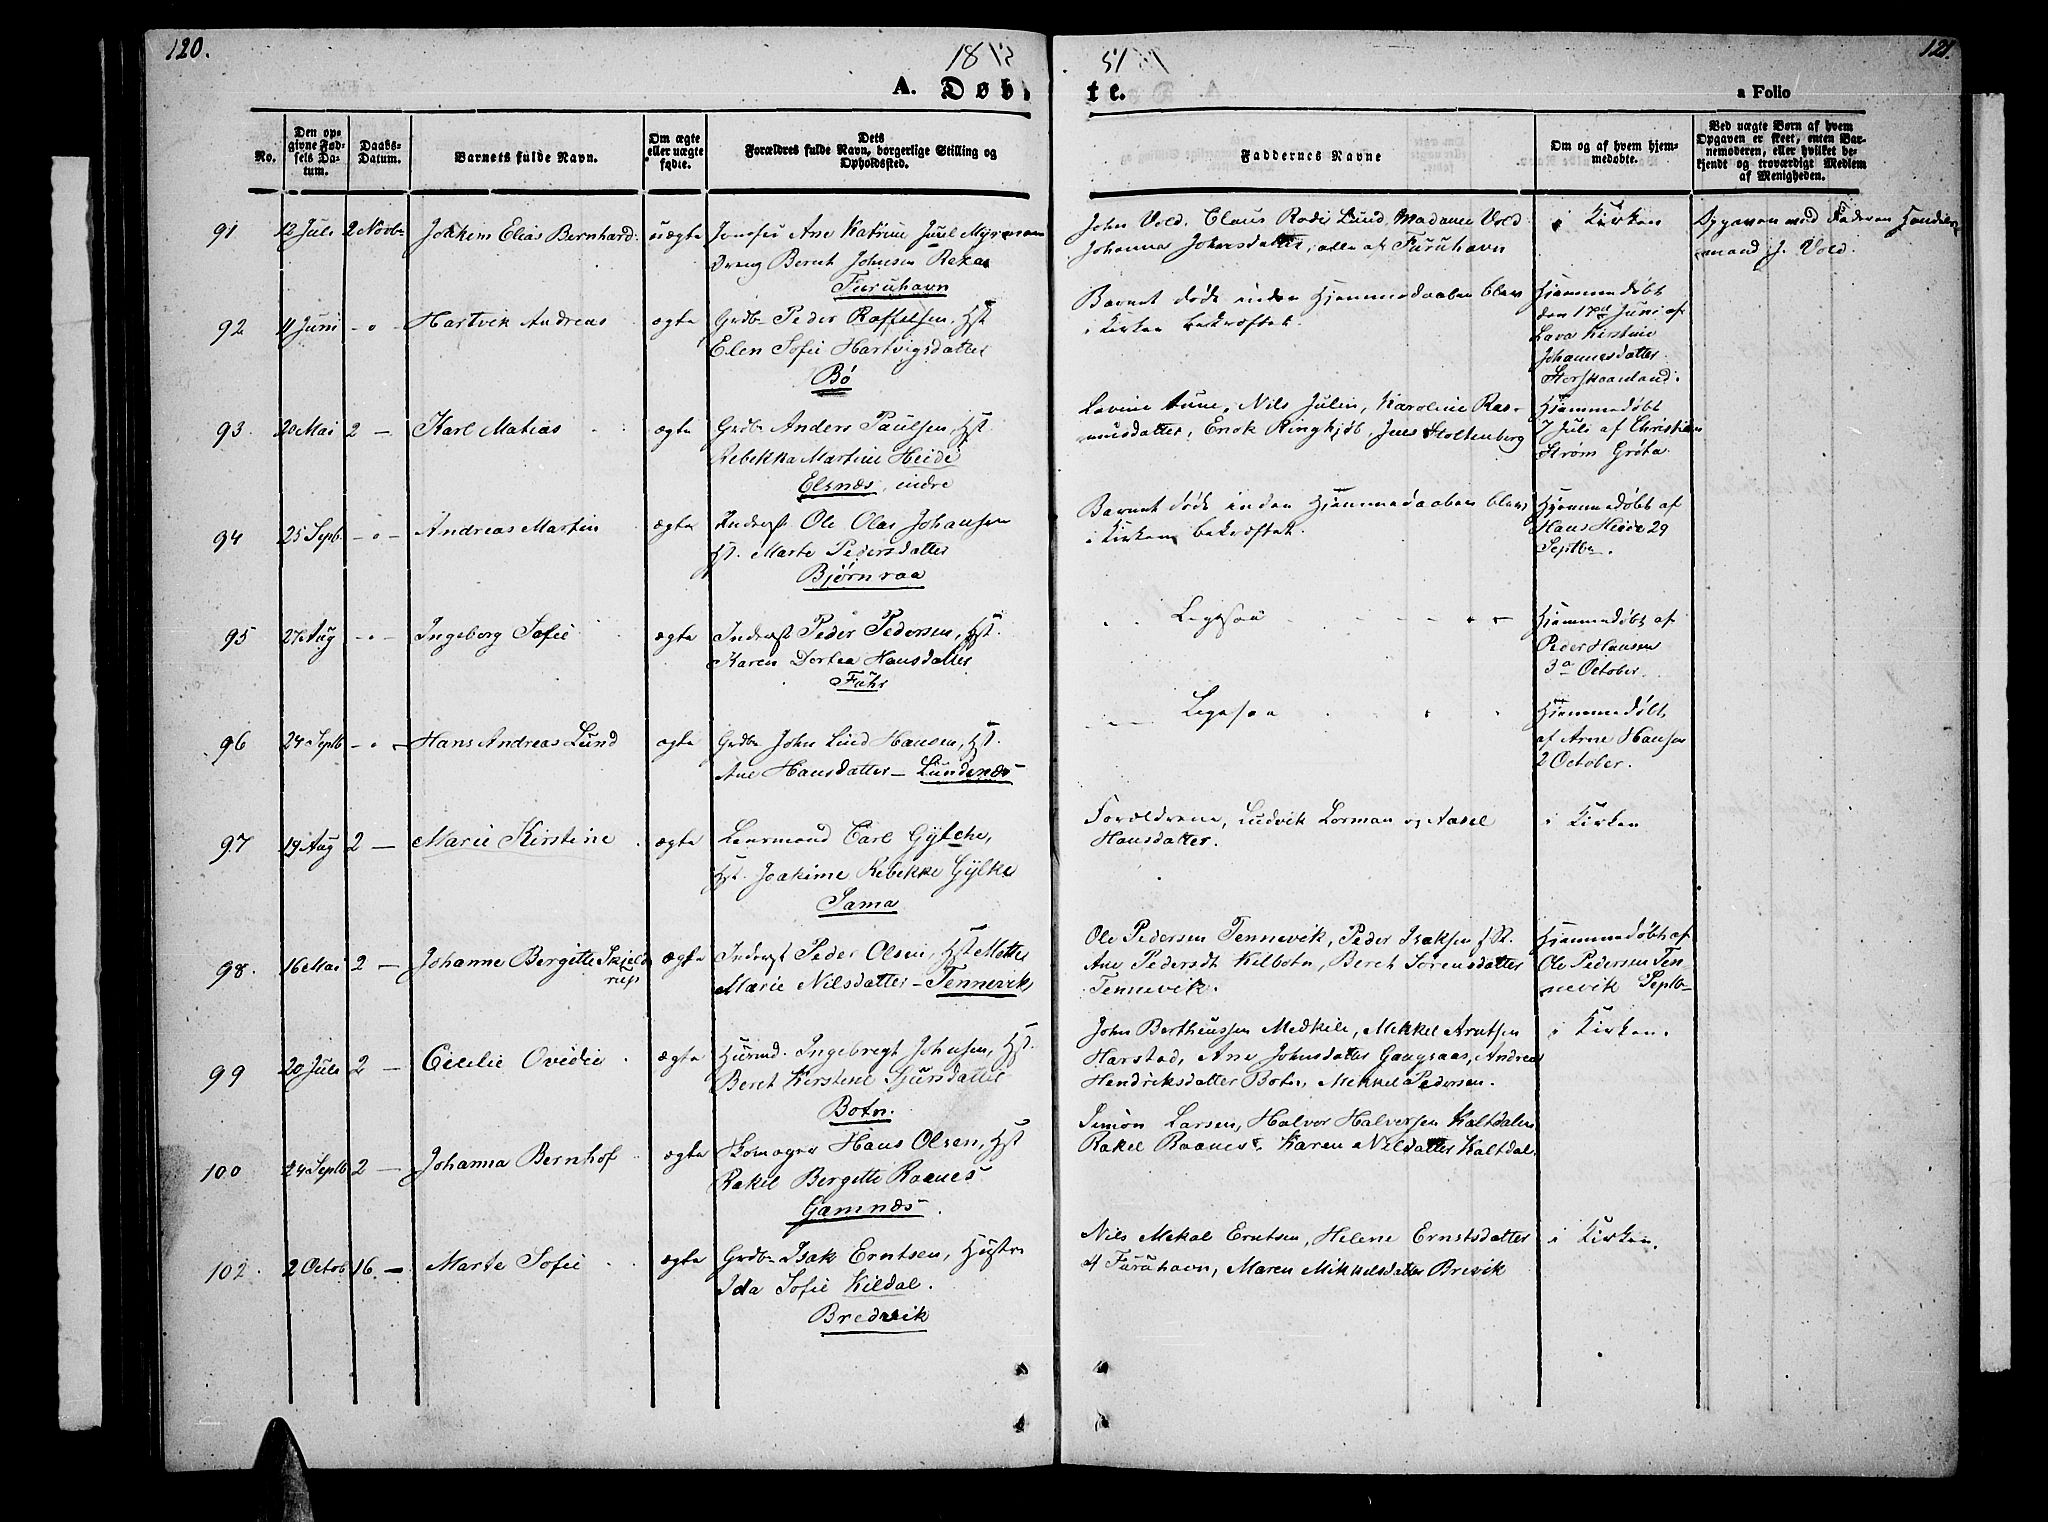 120.
121.
A. Døb-
te.
a Folio
No.
Den op-
givne Fød-
sels Da-
tum.
Daabs-
Datum.
Barnets fulde Navn.
Om ægte
eller uægte
fødte.
Dets
Forældres fulde Navn, borgerlige Stilling og
Opholdssted.
Faddernes Navne
Om og af hvem hjem-
medøbte.
Ved uægte Børn af hvem
Opgaven er skeet, enten Bar-
nemoderen, eller hvilket be-
kjendt og troværdigt Medlem
af Menigheden.
91 12 Juli 2 Novbr Joakim Elias Bernhard uægte Ane Katrine Juul Myr
Dreng Bernt Johnsen
Furuhavn
John Vold, Claus Rode Lund, Madame Vold
Johanna Johnsdatter, alle af Furuhavn
i Kirken
Opgaven med Faderen Handels-
mand J. Vold.
92 11 Juni - " - Hartvik Andreas ægte Grdbr Peder Raffelsen, Hst
Elen Sofie Hartvigsdatter
Bø
Barnet døde inden Hjemmedaaben blev
i Kirken bekræftet.
Hjemmedøbt
den 17de Juni af
Lava Kirstine
Johannesdatter
Storskaanland.
93 20 Mai 2 - Karl Matias ægte Grdbr Anders Paulsen, Hst
Rebekka Martine Heide
Elsnæs, indre
Lovine Aune, Nils Julin, Karoline Ras-
musdatter, Enok Ringkjøb, Jens Stoltenberg
Hjemmedøbt
7 Juli af Christian
Strøm Grøta
94 25 Septb. - " - Andreas Martin ægte Inderst Ole Olai Johansen
Hst. Marte Pedersdatter
Bjørnraa
Barnet døde inden Hjemmedaaben blev
i Kirken bekræftet.
Hjemmedøbt af
Hans Heide 29
Septbr.
95 27 Aug - " - Ingeborg Sofie ægte Inderst Peder Pedersen, Hst.
Karen Dortea Hansdatter
Ligesaa
Hjemmedøbt af
Peder Hansen
3 October.
96 24 Septb - " - Hans Andreas Lund ægte Grdbr John Lind Hansen, Hst.
Ane Hansdatter - Lundenæs
Ligesaa
Hjemmedøbt
af Arne Hansen
2 October.
97 19 Aug 2 - Marie Kirstine ægte Lensmand Carl Gylche,
Hst. Joakime Rebekke Gylke
Sama
Forældrene, Ludvik Lorman og Axel
Hansdatter.
i Kirken
98. 16 Mai 2 - Johanne Bergitte Skjeld-
rup ægte Inderst Peder Olsen, Hst Mette
Marie Nilsdatter - Tennevik
Ole Pedersen Tennevik, Peder Isaksen f. St.
Ane Pedersdt Kilbotn, Beret Sørensdatter
Tennevik.
Hjemmedøbt af
Ole Pedersen Ten-
nevik Septb-
99 20 Juli 2 - Cecilie Ovidie ægte Husmd. Ingebregt Johnsen, Hst.
Beret Kirstine Sjursdatter
Botn.
John Bertheussen Medkile, Mekkel Arntsen
Harstad, Ane Johnsdatter Gangsaas, Andrea
Hendriksdatter Botn, Mekkel Pedersen.
i Kirken.
100 24 Septb 2 - Johanna Bernhof ægte Skomager Hans Olsen, Hst
Rakel Bergitte Raanes
Gamnæs.
Simon Larsen, Halvor Halversen Kaltdalen
Rakel Raanes, Karen Nilsdatter Kaltdal.
102. 2 Octob 16 - Marte Sofie ægte Grdbr Isak Erntsen, Hustr
Ida Sofie Kildal.
Bredvik
Nils Mekal Erntsen, Helene Ernstsdatter
af Furuhavn, Maren Mikkelsdatter Brevik
i Kirken.